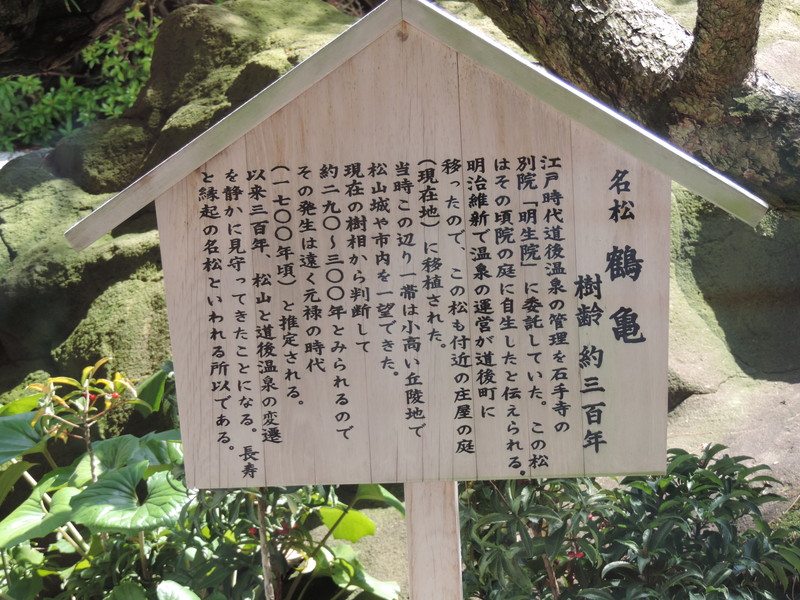 名松 鶴亀
樹齢 約三百年
江戸時代道後温泉の管理を石手寺の
別院「明生院」に委託していた。この松
はその頃院の庭に自生したと伝えられる。
明治維新で温泉の運営が道後町に
移ったので、この松も付近の庄屋の庭
(現在地)に移植された。
当時この辺り一帯は小高い丘陵地で
松山城や市内を一望できた。
現在の樹相から判断して
約二九〇～三〇〇年とみられるので
その発生は遠く元禄の時代
(一七〇〇年頃)と推定される。
以来三百年、松山と道後温泉の変遷
を静かに見守ってきたことになる。長寿
と縁起の名松といわれる所以である。